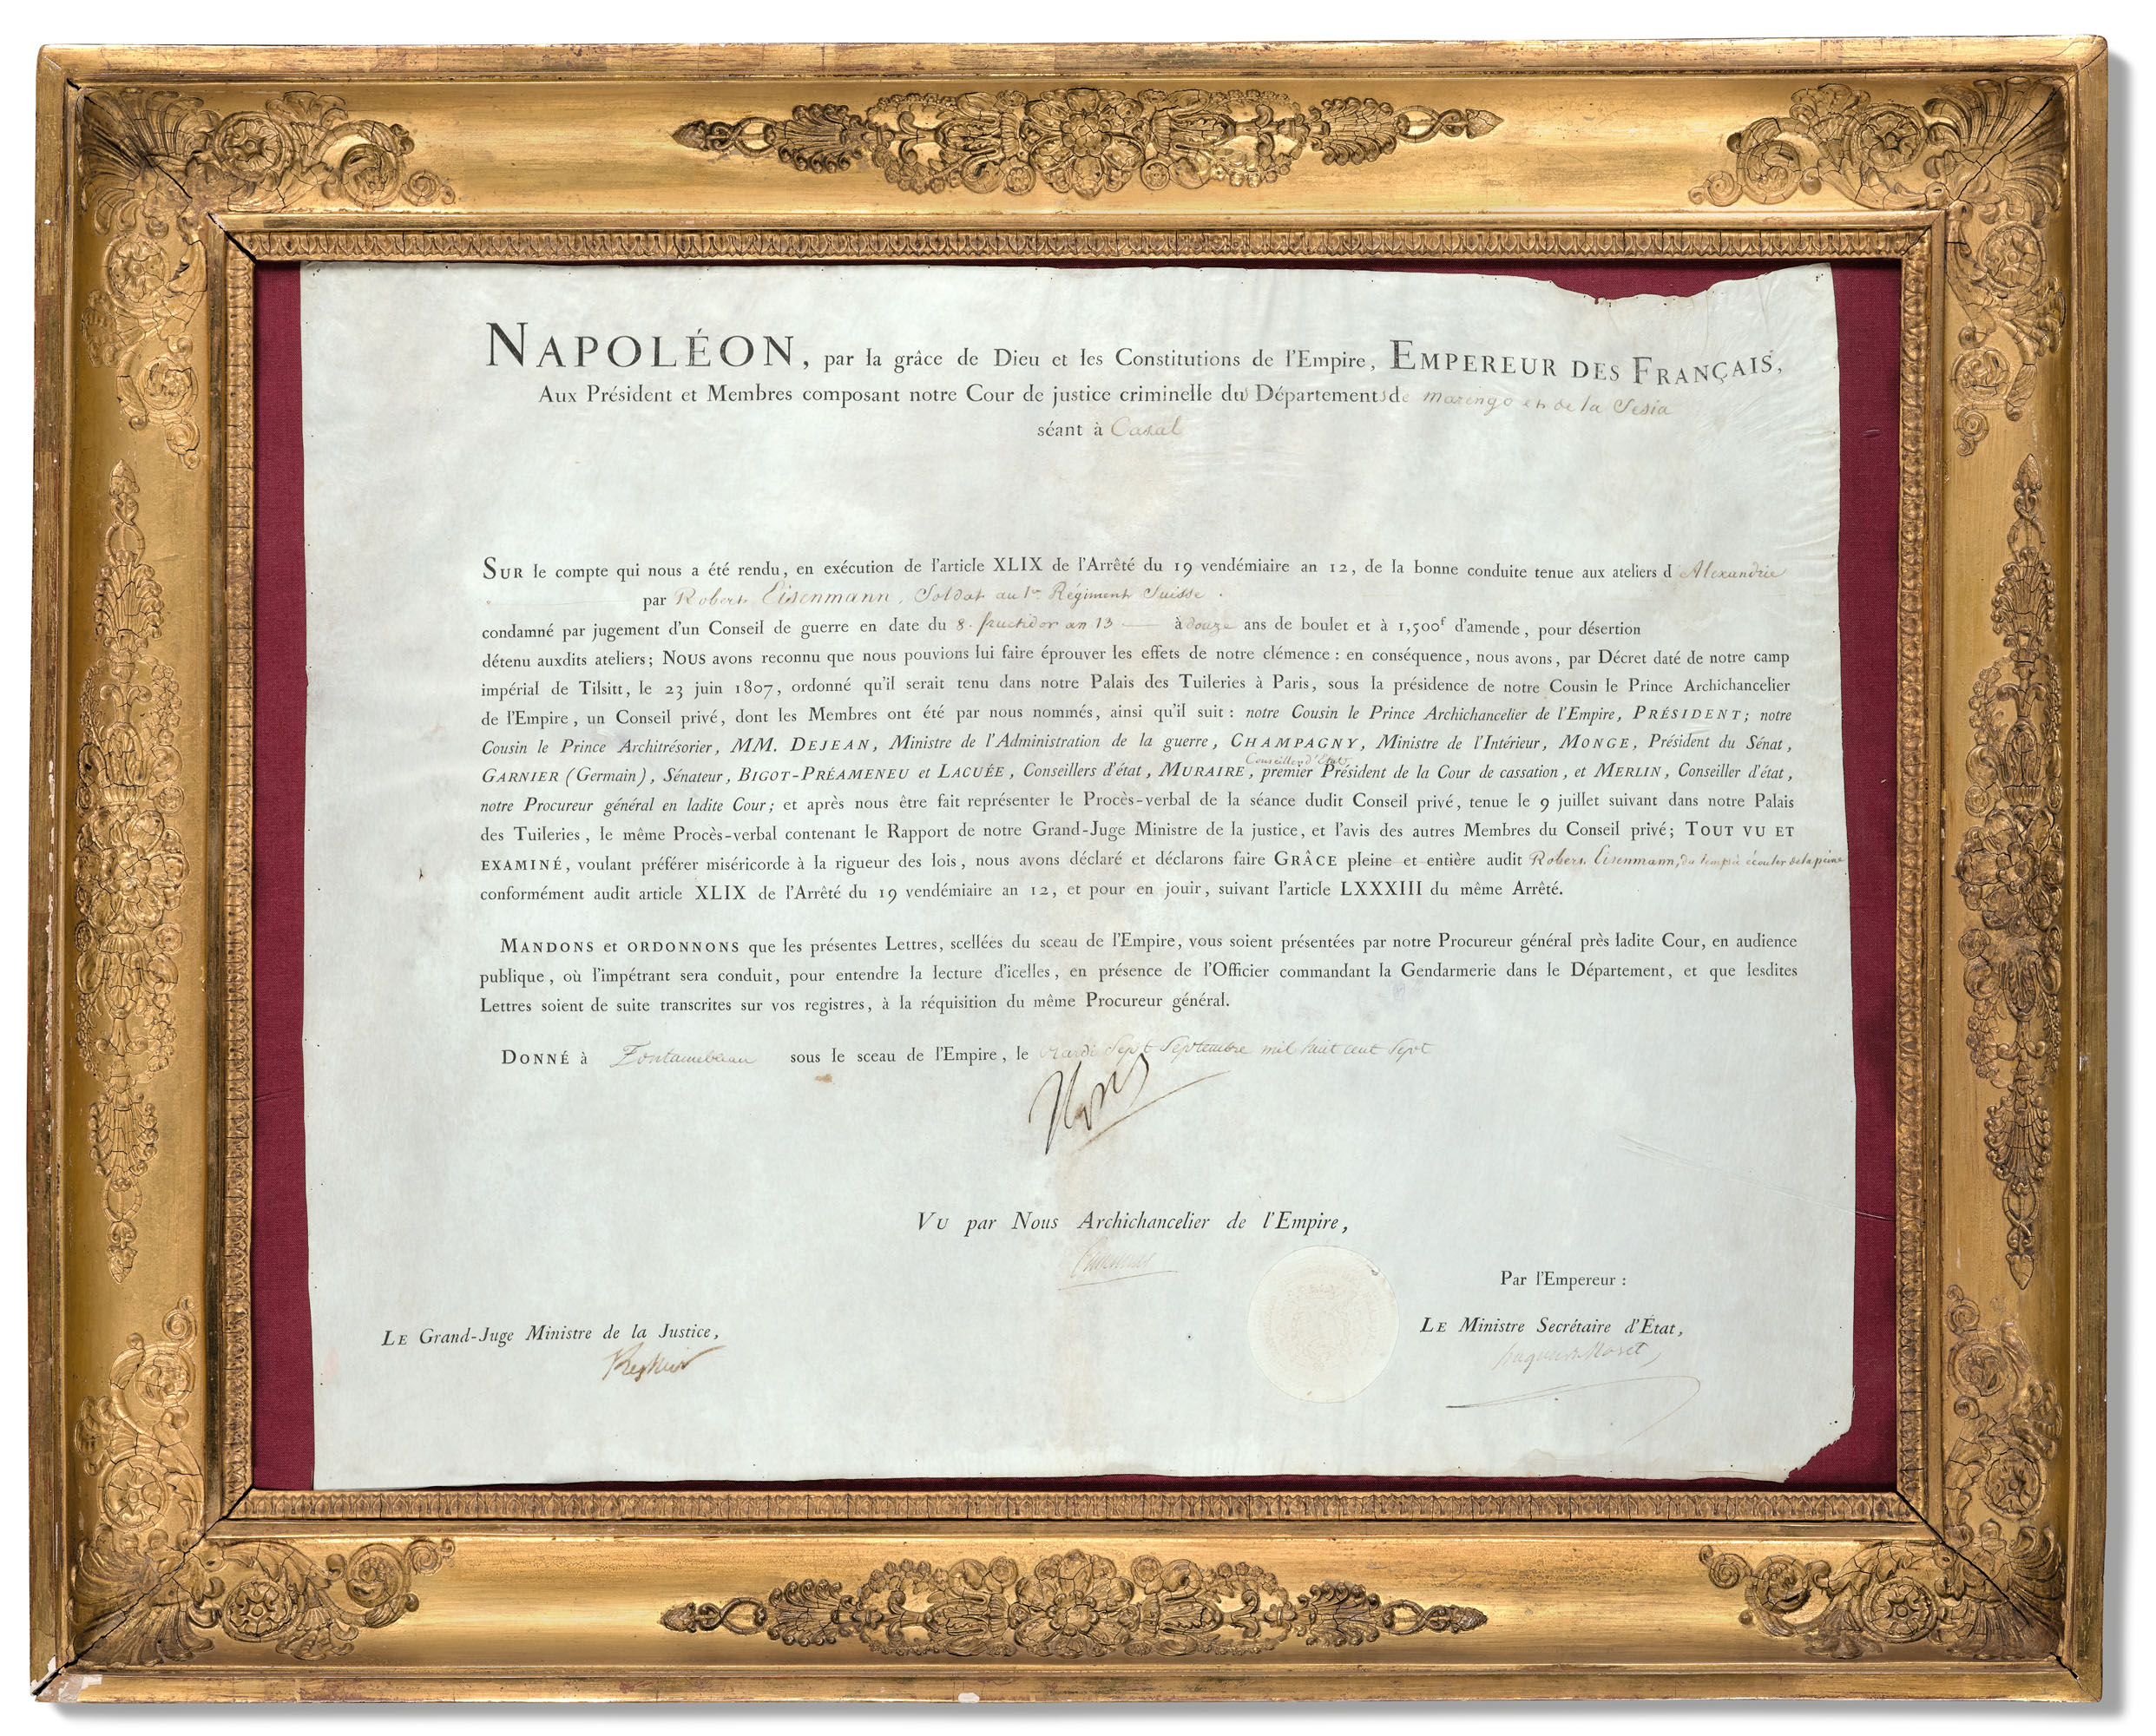 NAPOLÉON, par la grâce de Dieu et les Constitutions de l'Empire, EMPEREUR DES FRANÇAIS,
Aux Président et Membres composant notre Cour de justice criminelle du Départements de Marengo et de la Sesia
séant à Casal
SUR le compte qui nous a été rendu, en exécution de l'article XLIX de l'Arrêté du 19 vendémiaire an 12, de la bonne conduite tenue aux ateliers d'Alexandrie
par Robert Eisenmann, Soldat au 1er Régiment Suisse.
condamné par jugement d'un Conseil de guerre en date du 8. fructidor an 13 — à douze ans de boulet et à 1,500f d'amende, pour désertion
détenu auxdits ateliers; NOUS avons reconnu que nous pouvions lui faire éprouver les effets de notre clémence : en conséquence, nous avons, par Décret daté de notre camp
impérial de Tilsitt, le 23 juin 1807, ordonné qu'il serait tenu dans notre Palais des Tuileries à Paris, sous la présidence de notre Cousin le Prince Archichancelier
de l'Empire, un Conseil privé, dont les Membres ont été par nous nommés, ainsi qu'il suit : notre Cousin le Prince Archichancelier de l'Empire, PRÉSIDENT; notre
Cousin le Prince Architrésorier, MM. DEJEAN, Ministre de l'Administration de la guerre, CHAMPAGNY, Ministre de l'Intérieur, MONGE, Président du Sénat,
Conseiller d'État,
GARNIER (Germain), Sénateur, BIGOT-PRÉAMENEU et LACUÉE, Conseillers d'état, MURAIRE, premier Président de la Cour de cassation, et MERLIN, Conseiller d'état,
notre Procureur général en ladite Cour; et après nous être fait représenter le Procès-verbal de la séance dudit Conseil privé, tenue le 9 juillet suivant dans notre Palais
des Tuileries, le même Procès-verbal contenant le Rapport de notre Grand-Juge Ministre de la justice, et l'avis des autres Membres du Conseil privé; TOUT VU ET
EXAMINÉ, voulant préférer miséricorde à la rigueur des lois, nous avons déclaré et déclarons faire GRÂCE pleine et entière audit Robert Eisenmann, du temps à écouler de la peine
conformément audit article XLIX de l'Arrêté du 19 vendémiaire an 12, et pour en jouir, suivant l'article LXXXIII du même Arrêté.
MANDONS et ORDONNONS que les présentes Lettres, scellées du sceau de l'Empire, vous soient présentées par notre Procureur général près ladite Cour, en audience
publique, où l'impétrant sera conduit, pour entendre la lecture d'icelles, en présence de l'Officier commandant la Gendarmerie dans le Département, et que lesdites
Lettres soient de suite transcrites sur vos registres, à la réquisition du même Procureur général.
DONNÉ à Fontainebleau sous le sceau de l'Empire, le Sept Septembre mil huit cent Sept
VU par Nous Archichancelier de l'Empire,
Par l'Empereur :
LE Grand-Juge Ministre de la Justice,
LE Ministre Secrétaire d'État,
Regnier
hugues B. Maret